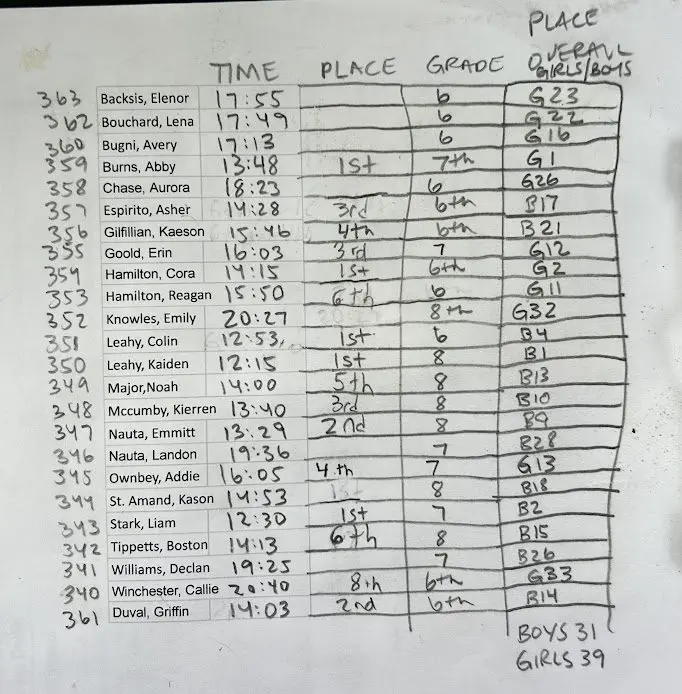 PLACE
TIME PLACE GRADE OVERALL GIRLS/BOYS
363 Backsis, Elenor 17:55 6 G23
362 Bouchard, Lena 17:49 6 G22
360 Bugni, Avery 17:13 6 G16
359 Burns, Abby 13:48 1st 7th G1
358 Chase, Aurora 18:23 6 G26
357 Espirito, Asher 14:28 3rd 6th B17
356 Gilfillian, Kaeson 15:46 4th 6th B21
355 Goold, Erin 16:03 3rd 7 G12
354 Hamilton, Cora 14:15 1st 6th G2
353 Hamilton, Reagan 15:50 6th 6 G11
352 Knowles, Emily 20:27 8th G32
351 Leahy, Colin 12:53 1st 6 B4
350 Leahy, Kaiden 12:15 1st 8 B1
349 Major,Noah 14:00 5th 8 B13
348 Mccumby, Kierren 13:40 3rd 8 B10
347 Nauta, Emmitt 13:29 2nd 8 B9
346 Nauta, Landon 19:36 7 B28
345 Ownbey, Addie 16:05 4th 7 G13
344 St. Amand, Kason 14:53 8 B18
343 Stark, Liam 12:30 1st 7 B2
342 Tippetts, Boston 14:13 6th 8 B15
341 Williams, Declan 19:25 7 B26
340 Winchester, Callie 20:40 8th 6th G33
361 Duval, Griffin 14:03 2nd 6th B14
BOYS 31
GIRLS 39